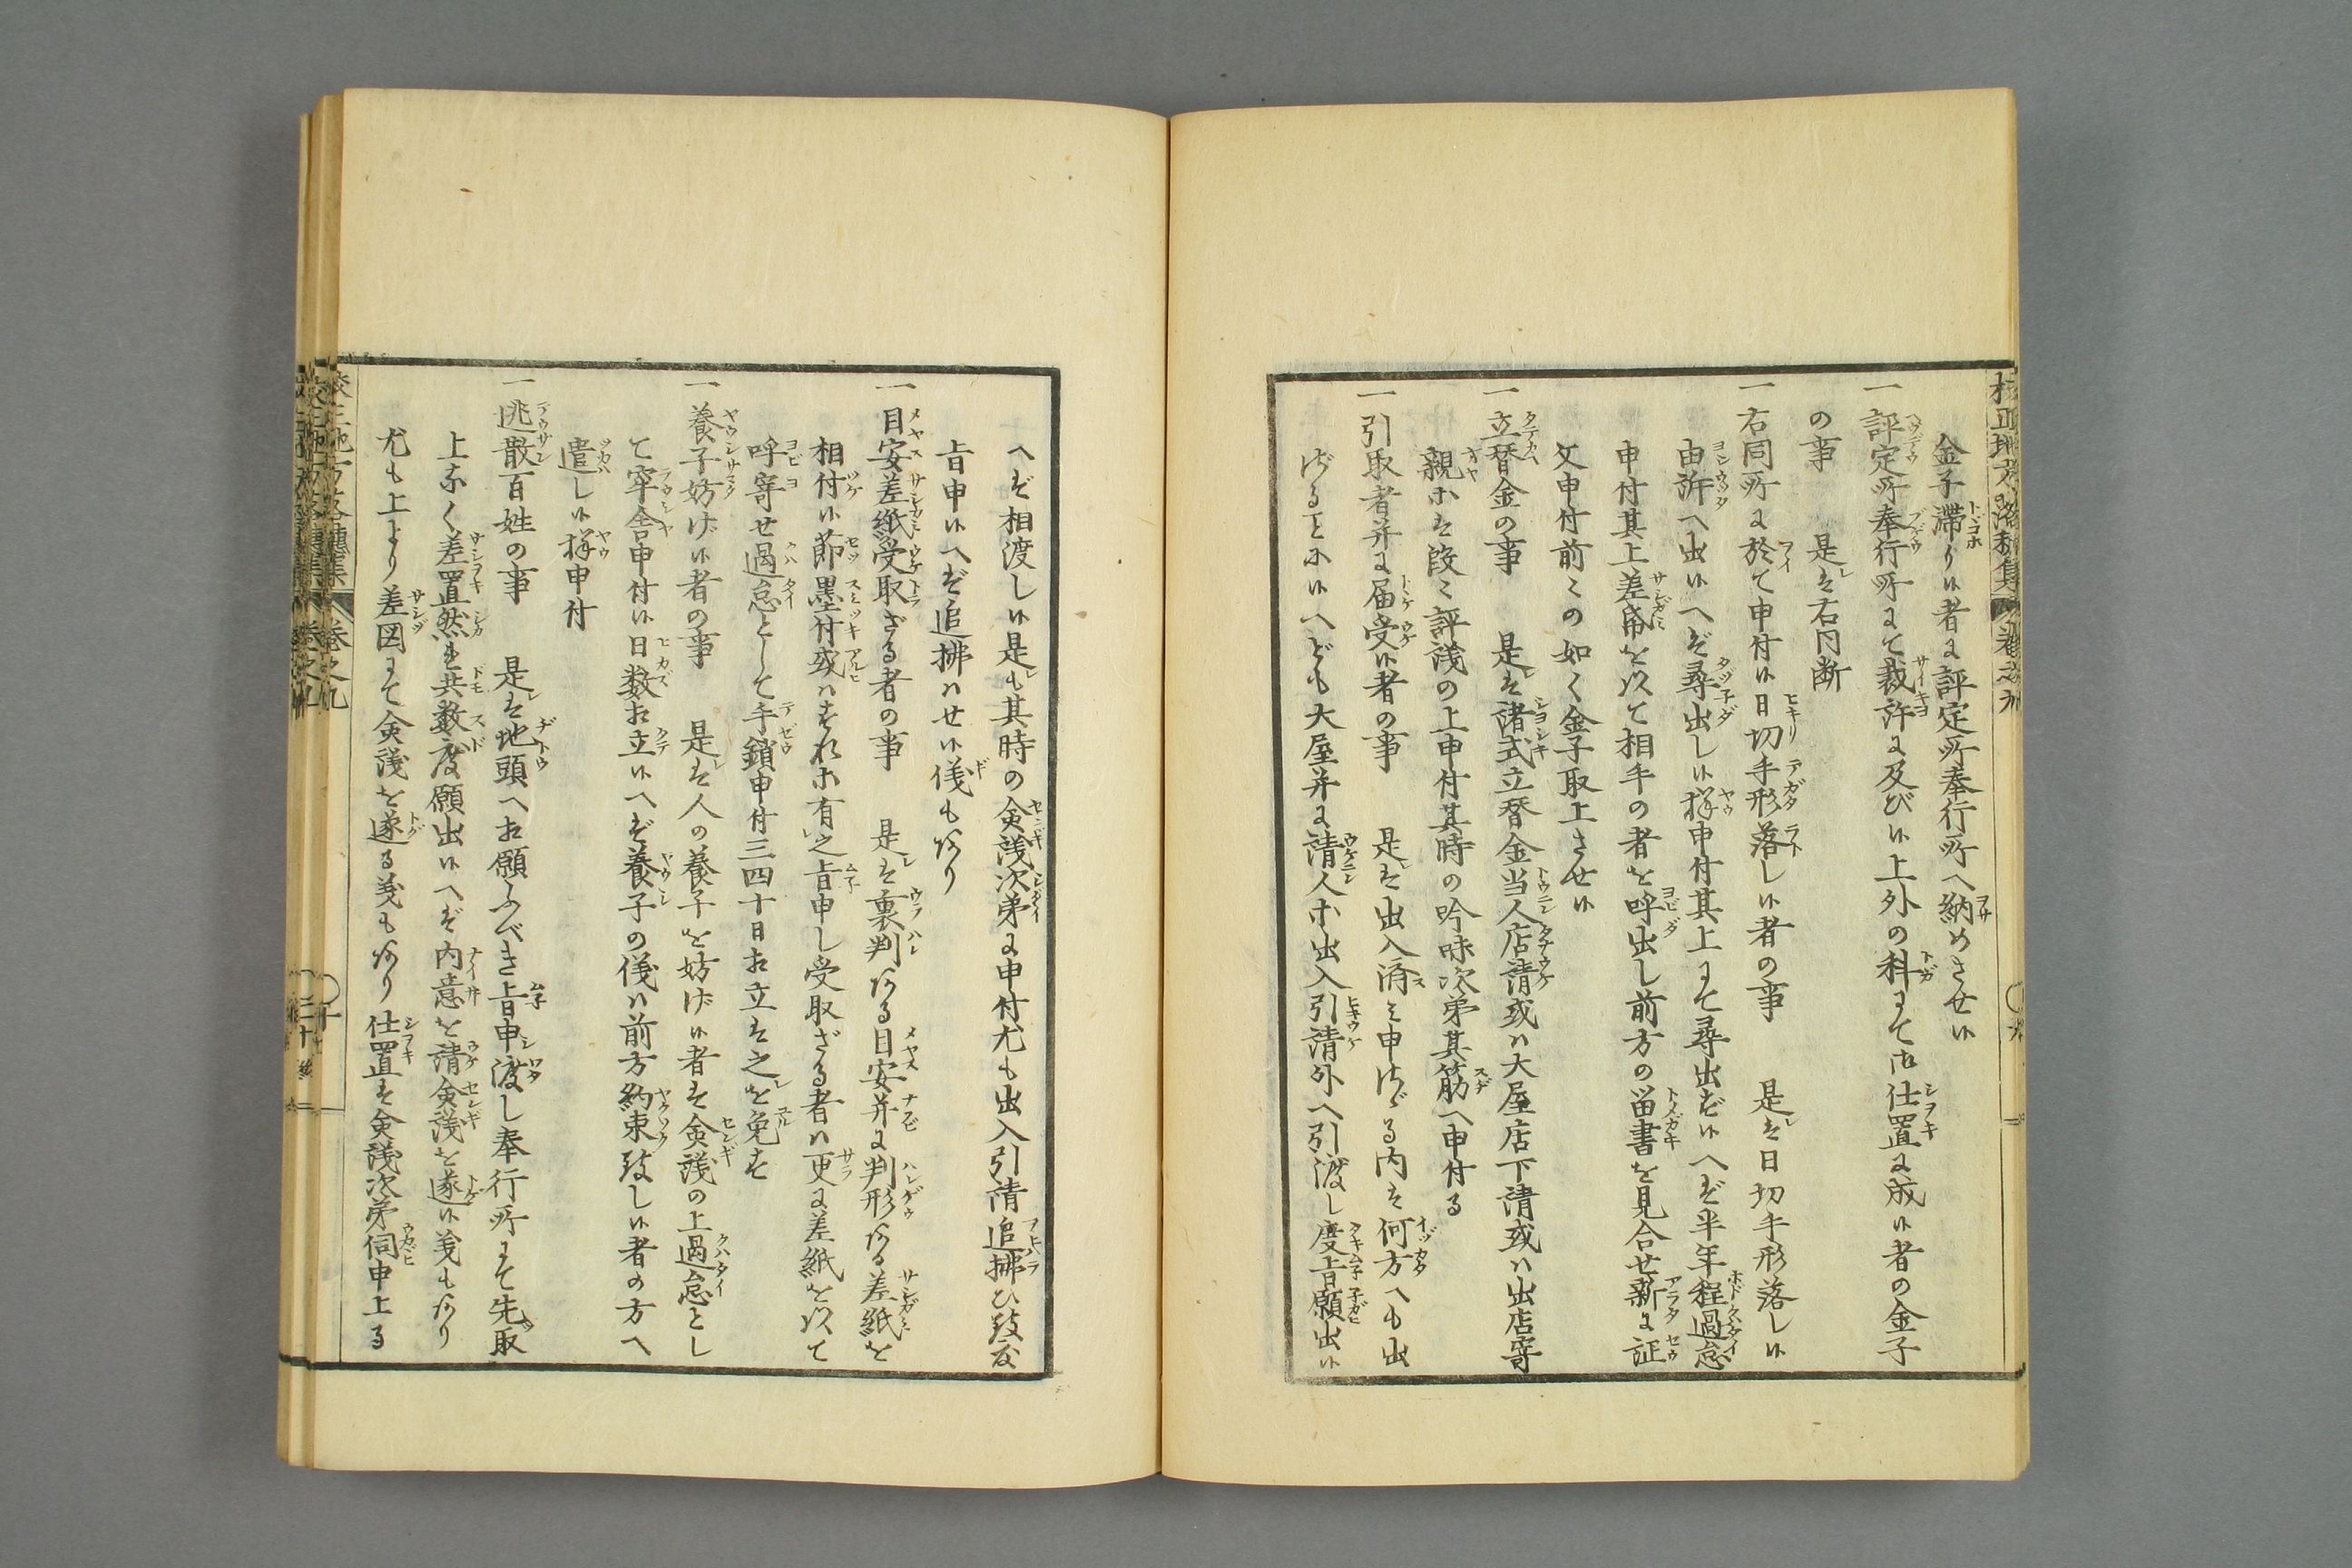 金子滞り候者は評定所奉行所へ納めさせ候
一評定所奉行所にて裁許に及び候上外の科にて御仕置に成候者の金子
の事　是は右同断
一右同所に於て申付候日切手形落し候者の事　是は日切手形落し候
由訴へ出候へば尋出し候様申付其上にて尋出ず候へば半年程過怠
申付其上差帋を以て相手の者を呼出し前方の留書を見合せ新に証
文申付前々の如く金子取上させ候
一立替金の事　是は諸式立替金当人店請或は大屋店下請或は出店寄
親等は段々評議の上申付其時の吟味次第其筋へ申付る
一引取者并に届受候者の事　是は出入済み申さゞる内は何方へも出
さゞること等候へども大屋并に請人等出入引請外へ引渡し度旨願出候
へば相渡し候是も其時の僉議次第に申付尤も出入引請追払ひ致度
旨申候へば追払はせ候儀もあり
一目安差紙受取ざる者の事　是は裏判ある目安并に判形ある差紙を
相付候節墨付或はすれ等有之旨申し受取ざる者は更に差紙を以て
呼寄せ過怠として手鎖申付三四十日相立は之を免す
一養子妨げ候者の事　是は人の養子を妨げ候者は僉議の上過怠とし
て牢舎申付候日数相立候へば養子の儀は前方約束致し候者の方へ
遣し候様申付
一逃散百姓の事　是は地頭へ相願ふべき旨申渡し奉行所にて先取
上なく差置然れ共数度願出候へば内意を請僉議を遂候義もあり
尤も上より差図にて僉議を遂る義もあり仕置は僉議次第伺申上る